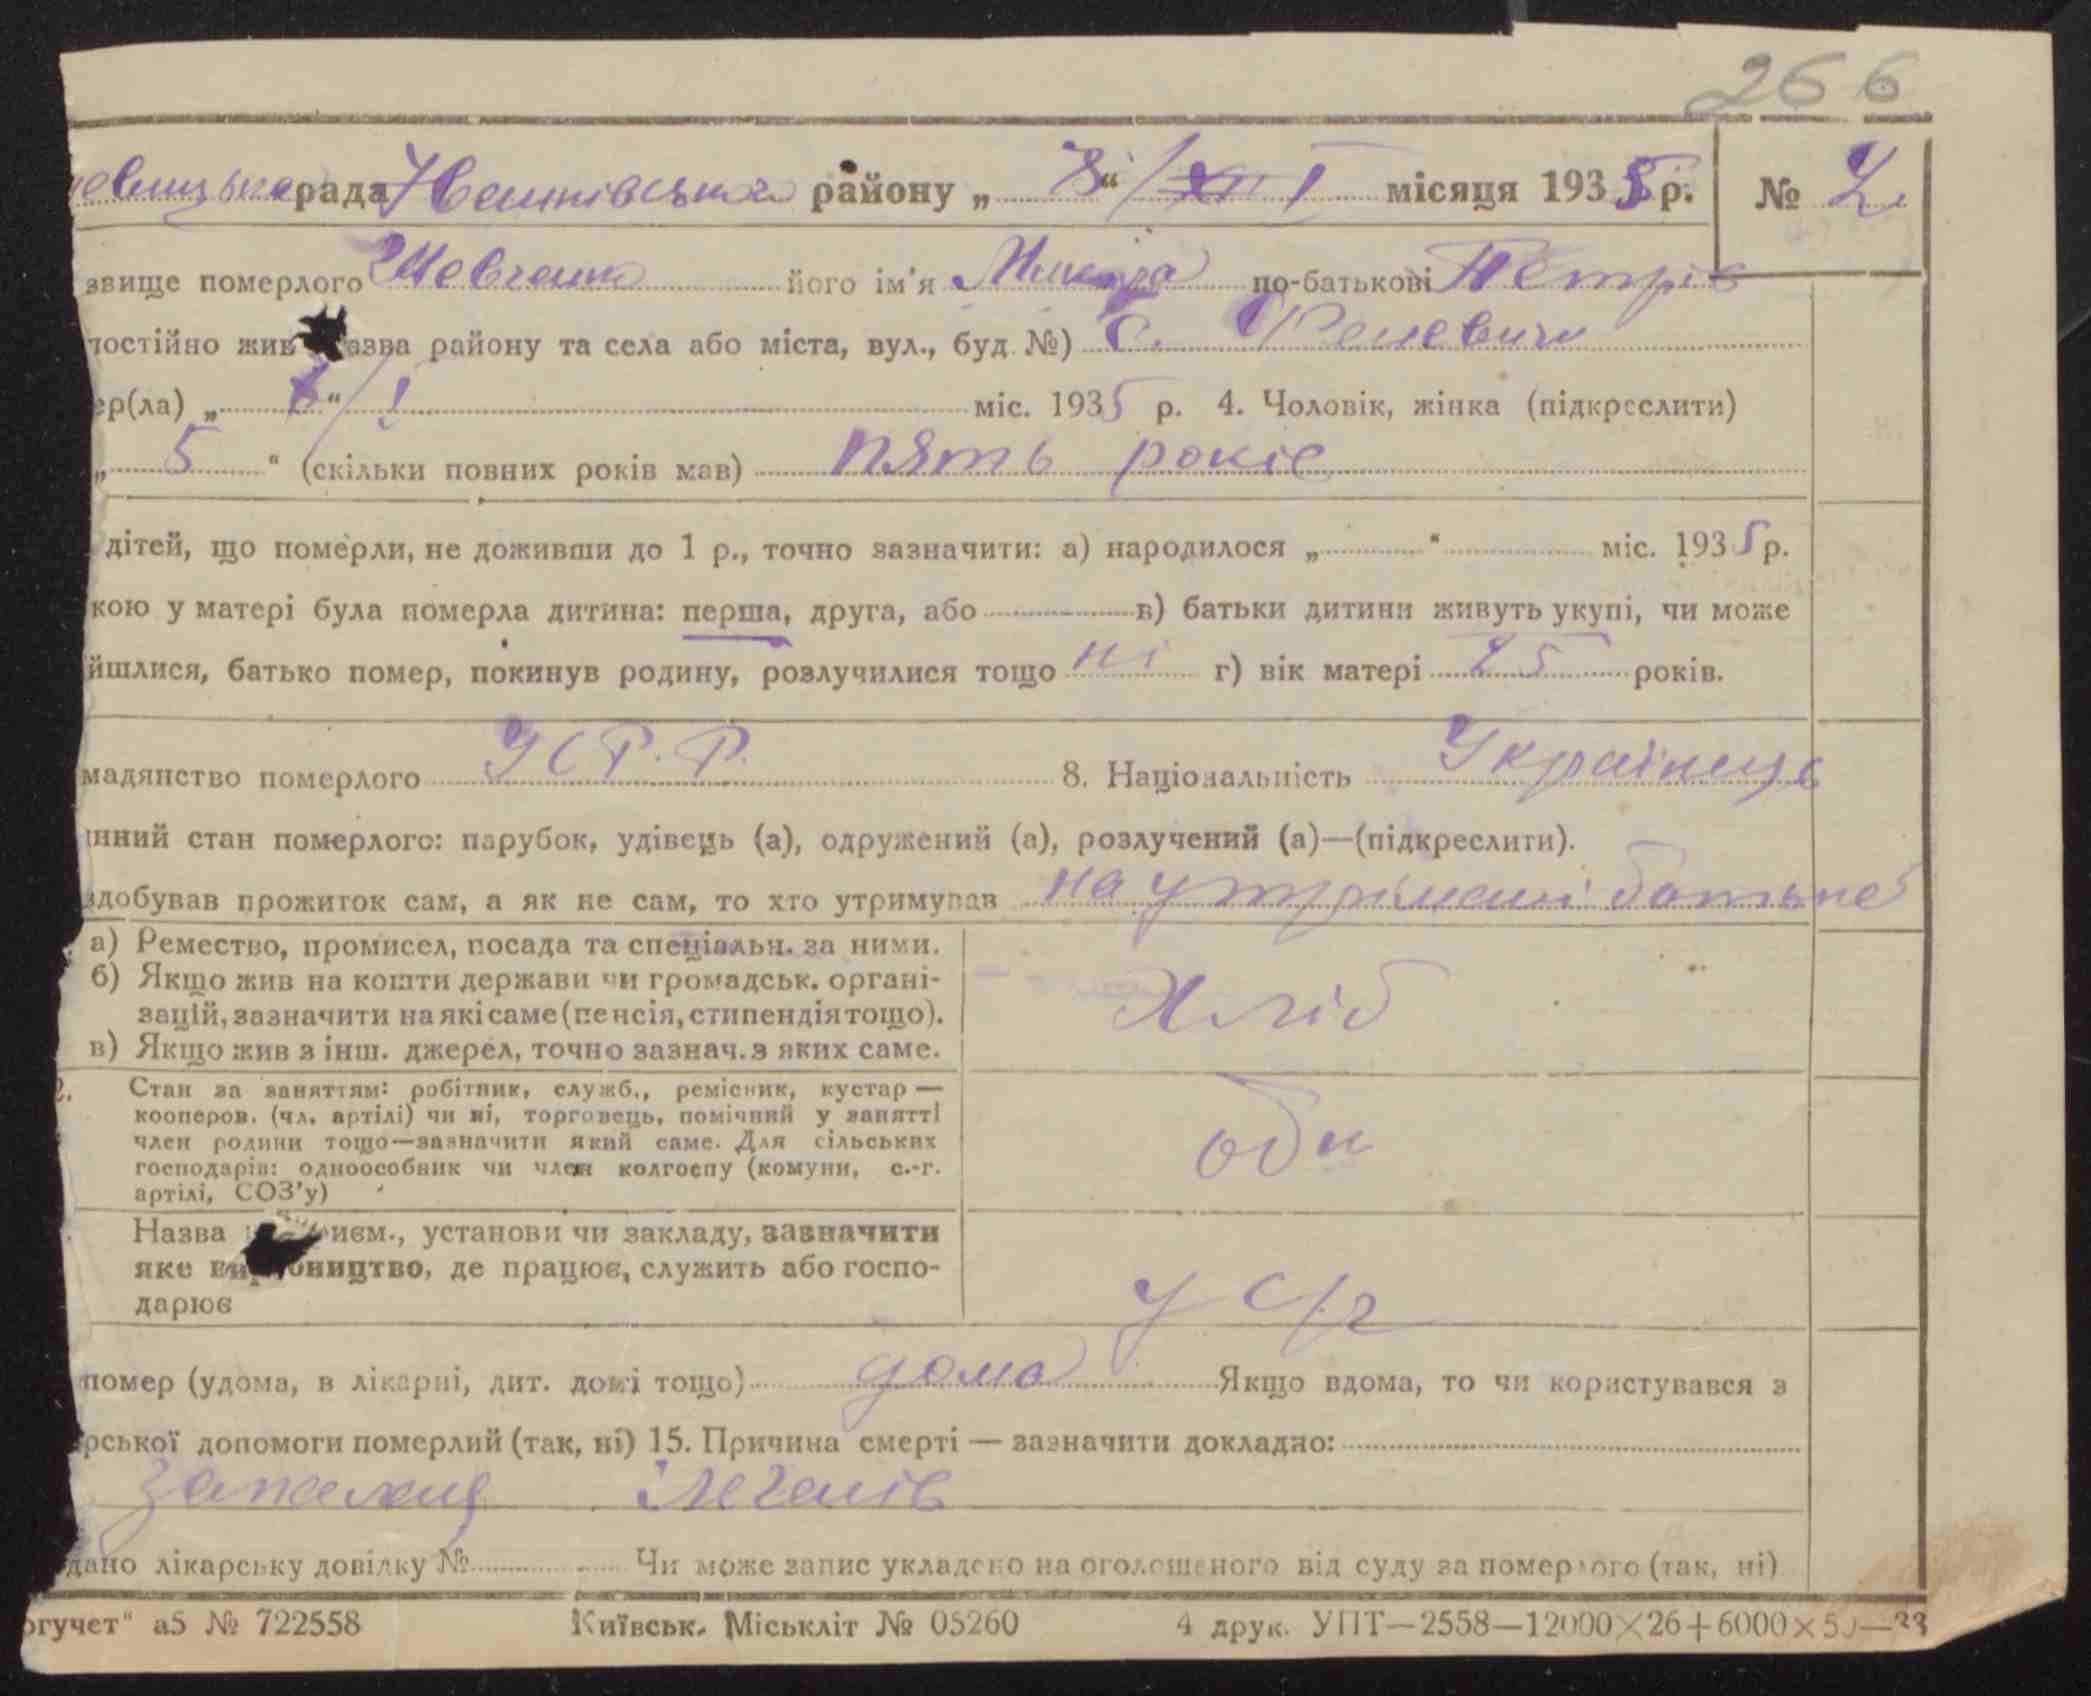 266
рада Іванківського району „ 8 “ / I місяця 1935 р. № 2
звище померлого Шевченко його ім'я Микола по-батькові Петрів
постійно жив азва району та села або міста, вул., буд. №) с.
ер(ла) „ 6 “ / I міс. 1935 р. 4. Чоловік, жінка (підкреслити)
„ 5 “ (скільки повних років мав) пять років
дітей, що померли, не доживши до 1 р., точно зазначити: а) народилося „ “ міс. 1935 р.
кою у матері була померла дитина: перша, друга, або в) батьки дитини живуть укупі, чи може
йшлися, батько помер, покинув родину, розлучилися тощо ні г) вік матері 25 років.
мадянство померлого УСР.Р. 8. Національність Українець
нний стан померлого: парубок, удівець (а), одружений (а), розлучений (а)—(підкреслити).
здобував прожиток сам, а як не сам, то хто утримував на утримані батьків
а) Ремество, промисел, посада та спеціальн. за ними.
б) Якщо жив на кошти держави чи громадськ. органі-
зацій, зазначити на які саме (пенсія, стипендія тощо).
в) Якщо жив з інш. джерел, точно зазнач. з яких саме.
Хліб
2. Стан за заняттям: робітник, служб., ремісник, кустар —
кооперов. (чл. артілі) чи ні, торговець, помічний у занятті
член родини тощо—зазначити який саме. Для сільських
господарів: одноосібник чи член колгоспу (комуни, с.-г.
артілі, СОЗ'у)
одн
Назва риєм., установи чи закладу, зазначити
яке виробництво, де працює, служить або госпо-
дарює
у с/г
помер (удома, в лікарні, дит. домі тощо) дома Якщо вдома, то чи користувався з
рської допомоги померлий (так, ні) 15. Причина смерті — зазначити докладно:
Запалення легенів
дано лікарську довідку № Чи може запис укладено на оголошеного від суду за померлого (так, ні)
огучет“ а5 № 722558 Київськ. Міськліт № 05260 4 друк. УПТ—2558—12000×26+6000×50—33